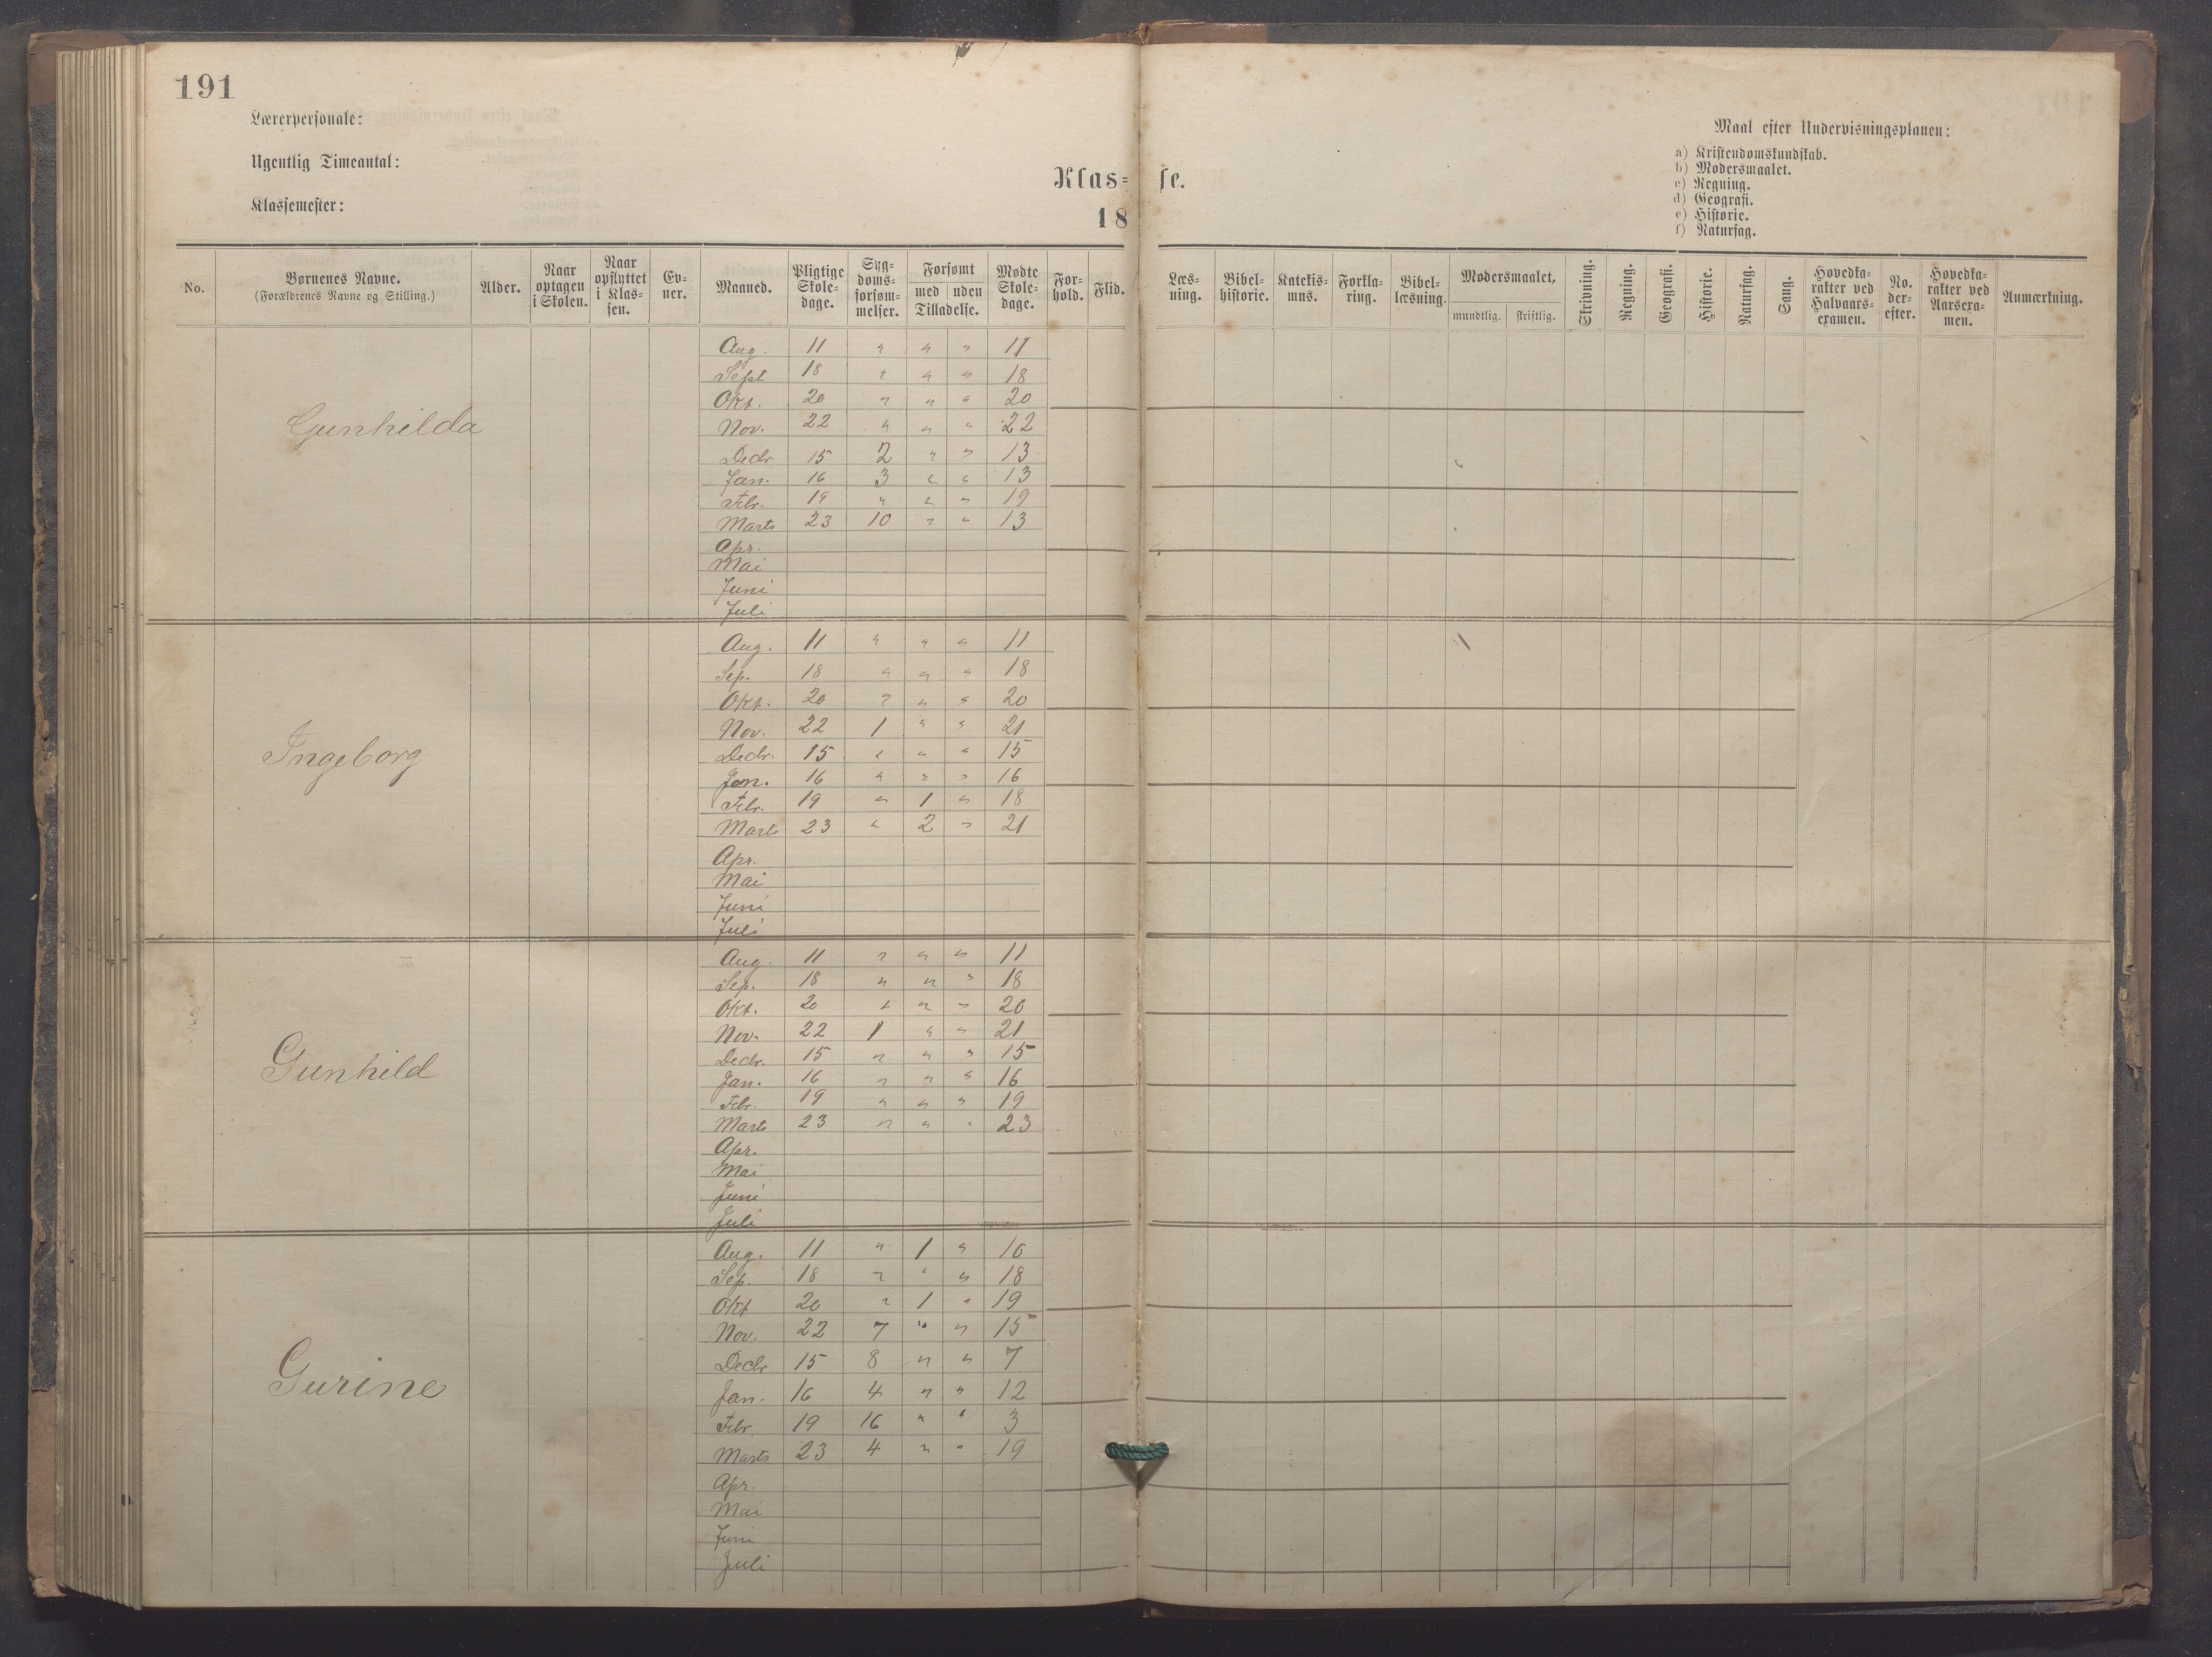 191
Lærerpersonale:
Ugentlig Timeantal:
Klassemester:
Klas= se.
18
Maal efter Undervisningsplanen:
a) Kristendomskundskab.
b) Modersmaalet.
c) Regning.
d) Geografi.
e) Historie.
f) Naturfag.
No. Børnenes Navne. (Forældrenes Navne og Stilling.) Alder. Naar optagen i Skolen. Naar opflyttet i Klas-sen. Ev-ner. Maaned. Pligtige Skole-dage. Syg-doms-forsøm-melser. Forsømt med uden Tilladelse. Mødte Skole-dage. For-hold. Flid. Læs-ning. Bibel-historie. Katekis-mus. Forkla-ring. Bibel-læsning. Modersmaalet. mundtlig. skriftlig. Skrivning. Regning. Geografi. Historie. Naturfag. Sang. Hovedka-rakter ved Halvaars-examen. No. der-efter. Hovedka-rakter ved Aarsexa-men. Anmærkning.
Gunhilda
Aug. 11 " " " 11
Sept 18 " " " 18
Okt. 20 " " " 20
Nov. 22 " " " 22
Decbr 15 2 " " 13
Jan. 16 3 " " 13
Febr. 19 " " " 19
Marts 23 10 " " 13
Apr.
Mai
Juni
Juli
Ingeborg
Aug. 11 " " " 11
Sep. 18 " " " 18
Okt. 20 " " " 20
Nov. 22 1 " " 21
Decbr. 15 " " " 15
Jan. 16 " " " 16
Febr. 19 " 1 " 18
Marts 23 " 2 " 21
Apr.
Mai
Juni
Juli
Gunhild
Aug. 11 " " " 11
Sep. 18 " " " 18
Okt. 20 " " " 20
Nov. 22 1 " " 21
Decbr. 15 " " " 15
Jan. 16 " " " 16
Febr. 19 " " " 19
Marts 23 " " " 23
Apr.
Mai
Juni
Juli
Gurine
Aug. 11 " 1 " 10
Sep. 18 " " " 18
Okt 20 " 1 " 19
Nov. 22 7 " " 15
Decbr 15 8 " " 7
Jan. 16 4 " " 12
Febr 19 16 " " 3
Marts 23 4 " " 19
Apr.
Mai
Juni
Juli